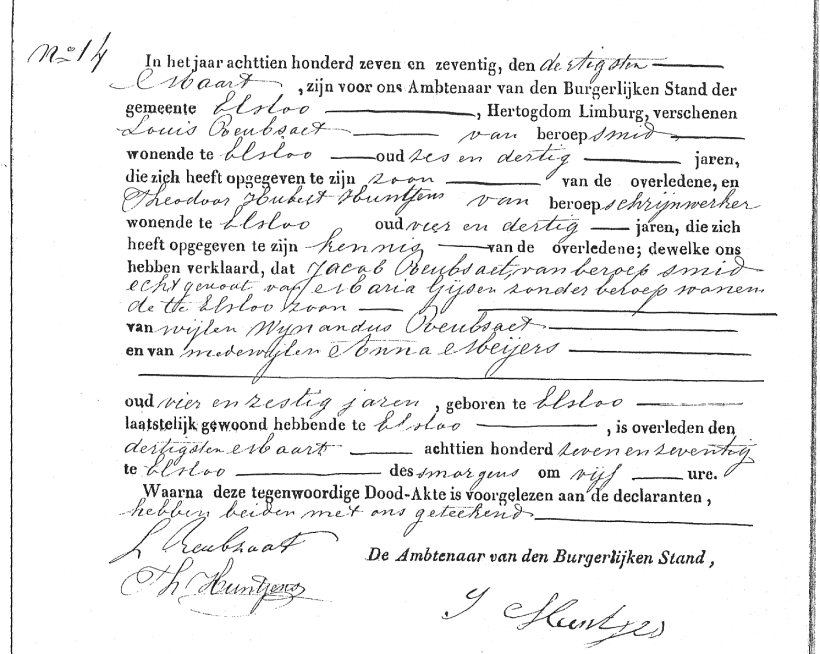 No 14
In het jaar achttien honderd zeven en zeventig, den dertigsten
Maart , zijn voor ons Ambtenaar van den Burgerlijken Stand der
gemeente Elsloo , Hertogdom Limburg, verschenen
Louis Reubsaet van beroep smid
wonende te Elsloo oud zes en dertig jaren,
die zich heeft opgegeven te zijn zoon van de overledene, en
Theodoor Hubert Huntjens van beroep schrijnwerker
wonende te Elsloo oud vier en dertig jaren, die zich
heeft opgegeven te zijn kennis van de overledene; dewelke ons
hebben verklaard, dat Jacob Reubsaet, van beroep smid
echtgenoot van Maria Gijsen zonder beroep wonen
de te Elsloo zoon
van wijlen Wijnandus Reubsaet
en van medewijlen Anna Meijers
oud vier en zestig jaren , geboren te Elsloo
laatstelijk gewoond hebbende te Elsloo , is overleden den
dertigsten Maart achttien honderd zeven en zeventig
te Elsloo des smorgens om vijf ure.
Waarna deze tegenwoordige Dood-Akte is voorgelezen aan de declaranten,
hebben beiden met ons geteekend
L Reubsaet
De Ambtenaar van den Burgerlijken Stand,
Th Huntjens